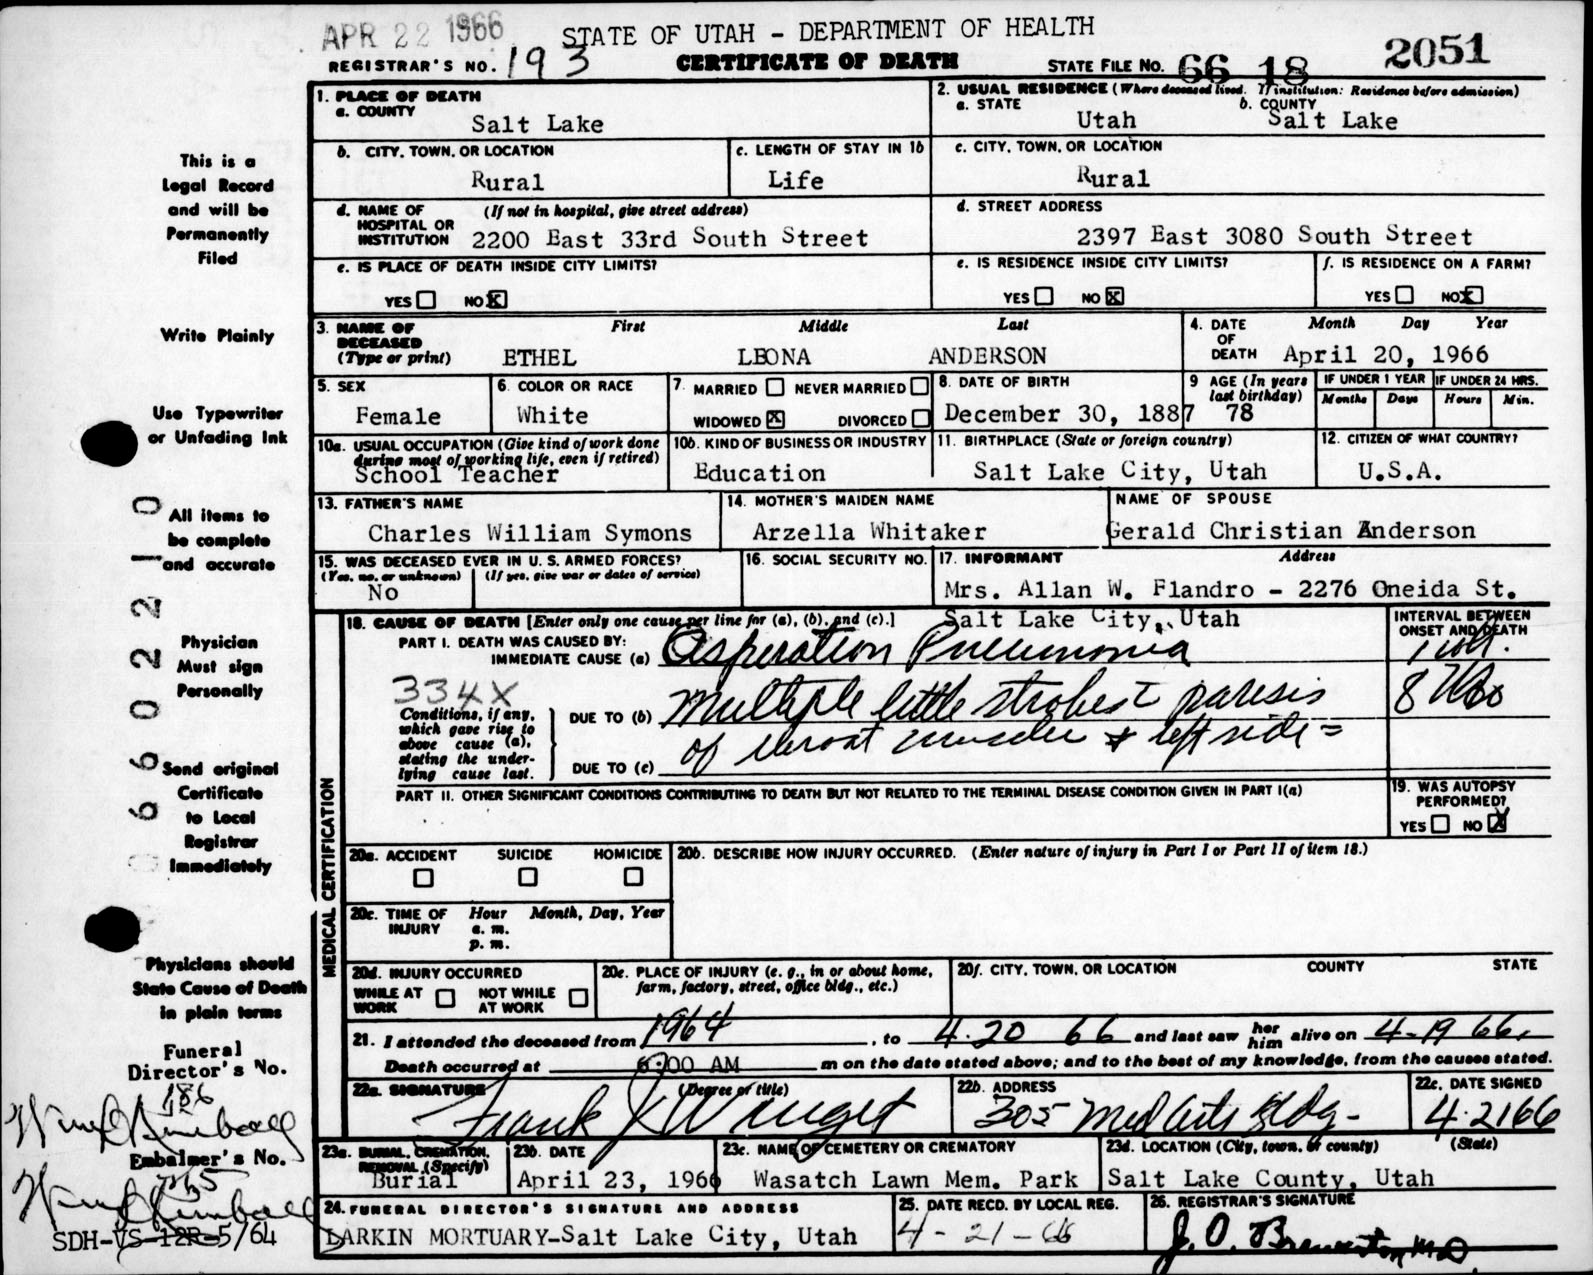 APR 22 1966
STATE OF UTAH - DEPARTMENT OF HEALTH
REGISTRAR'S NO. 193
CERTIFICATE OF DEATH
STATE FILE NO. 66 18 2051
This is a
Legal Record
and will be
Permanently
Filed
Write Plainly
Use Typewriter
or Unfading Ink
All items to
be complete
and accurate
Physician
Must sign
Personally
Send original
Certificate
to Local
Registrar
Immediately
Physicians should
State Cause of Death
in plain terms
Funeral
Director's No.
186
Embalmer's No.
SDH-VS-12R-5/64
1. PLACE OF DEATH
a. COUNTY
Salt Lake
2. USUAL RESIDENCE (Where deceased lived. If institution: Residence before admission)
a. STATE b. COUNTY
Utah Salt Lake
b. CITY, TOWN, OR LOCATION
Rural
c. LENGTH OF STAY IN 1b
Life
c. CITY, TOWN, OR LOCATION
Rural
d. NAME OF (If not in hospital, give street address)
HOSPITAL OR
INSTITUTION 2200 East 33rd South Street
d. STREET ADDRESS
2397 East 3080 South Street
e. IS PLACE OF DEATH INSIDE CITY LIMITS?
YES NO X
e. IS RESIDENCE INSIDE CITY LIMITS?
YES NO X
f. IS RESIDENCE ON A FARM?
YES NO X
3. NAME OF First Middle Last
DECEASED
(Type or print) ETHEL LEONA ANDERSON
4. DATE Month Day Year
OF
DEATH April 20, 1966
5. SEX
Female
6. COLOR OR RACE
White
7. MARRIED NEVER MARRIED
WIDOWED X DIVORCED
8. DATE OF BIRTH
December 30, 1887
9 AGE (In years
last birthday)
78
IF UNDER 1 YEAR IF UNDER 24 HRS.
Months Days Hours Min.
10a. USUAL OCCUPATION (Give kind of work done
during most of working life, even if retired)
School Teacher
10b. KIND OF BUSINESS OR INDUSTRY
Education
11. BIRTHPLACE (State or foreign country)
Salt Lake City, Utah
12. CITIZEN OF WHAT COUNTRY?
U.S.A.
13. FATHER'S NAME
Charles William Symons
14. MOTHER'S MAIDEN NAME
Arzella Whitaker
NAME OF SPOUSE
Gerald Christian Anderson
15. WAS DECEASED EVER IN U. S. ARMED FORCES?
(Yes, no, or unknown) (If yes, give war or dates of service)
No
16. SOCIAL SECURITY NO.
17. INFORMANT Address
Mrs. Allan W. Flandro - 2276 Oneida St.
Salt Lake City, Utah
18. CAUSE OF DEATH [Enter only one cause per line for (a), (b), and (c).]
INTERVAL BETWEEN
ONSET AND DEATH
PART I. DEATH WAS CAUSED BY:
IMMEDIATE CAUSE (a) Aspiration Pneumonia
334X
Conditions, if any,
which gave rise to
above cause (a),
stating the under-
lying cause last.
DUE TO (b) Multiple little strokes c paresis
8
of throat muscles & left side =
DUE TO (c)
PART II. OTHER SIGNIFICANT CONDITIONS CONTRIBUTING TO DEATH BUT NOT RELATED TO THE TERMINAL DISEASE CONDITION GIVEN IN PART I(a)
19. WAS AUTOPSY
PERFORMED?
YES NO X
MEDICAL CERTIFICATION
20a. ACCIDENT SUICIDE HOMICIDE
20b. DESCRIBE HOW INJURY OCCURRED. (Enter nature of injury in Part I or Part II of item 18.)
20c. TIME OF Hour Month, Day, Year
INJURY a. m.
p. m.
20d. INJURY OCCURRED
WHILE AT NOT WHILE
WORK AT WORK
20e. PLACE OF INJURY (e. g., in or about home,
farm, factory, street, office bldg., etc.)
20f. CITY, TOWN, OR LOCATION COUNTY STATE
21. I attended the deceased from 1964, to 4-20 66 and last saw her him alive on 4-19 66.
Death occurred at 6:00 AM m on the date stated above; and to the best of my knowledge, from the causes stated.
22a. SIGNATURE (Degree or title)
Frank J Winget
22b. ADDRESS
305 Med Arts Bldg-
22c. DATE SIGNED
4-21 66
23a. BURIAL, CREMATION,
REMOVAL (Specify)
Burial
23b. DATE
April 23, 1966
23c. NAME OF CEMETERY OR CREMATORY
Wasatch Lawn Mem. Park
23d. LOCATION (City, town, or county) (State)
Salt Lake County, Utah
24. FUNERAL DIRECTOR'S SIGNATURE AND ADDRESS
LARKIN MORTUARY-Salt Lake City, Utah
25. DATE RECD. BY LOCAL REG.
4-21-66
26. REGISTRAR'S SIGNATURE
J. O. Brewerton MD